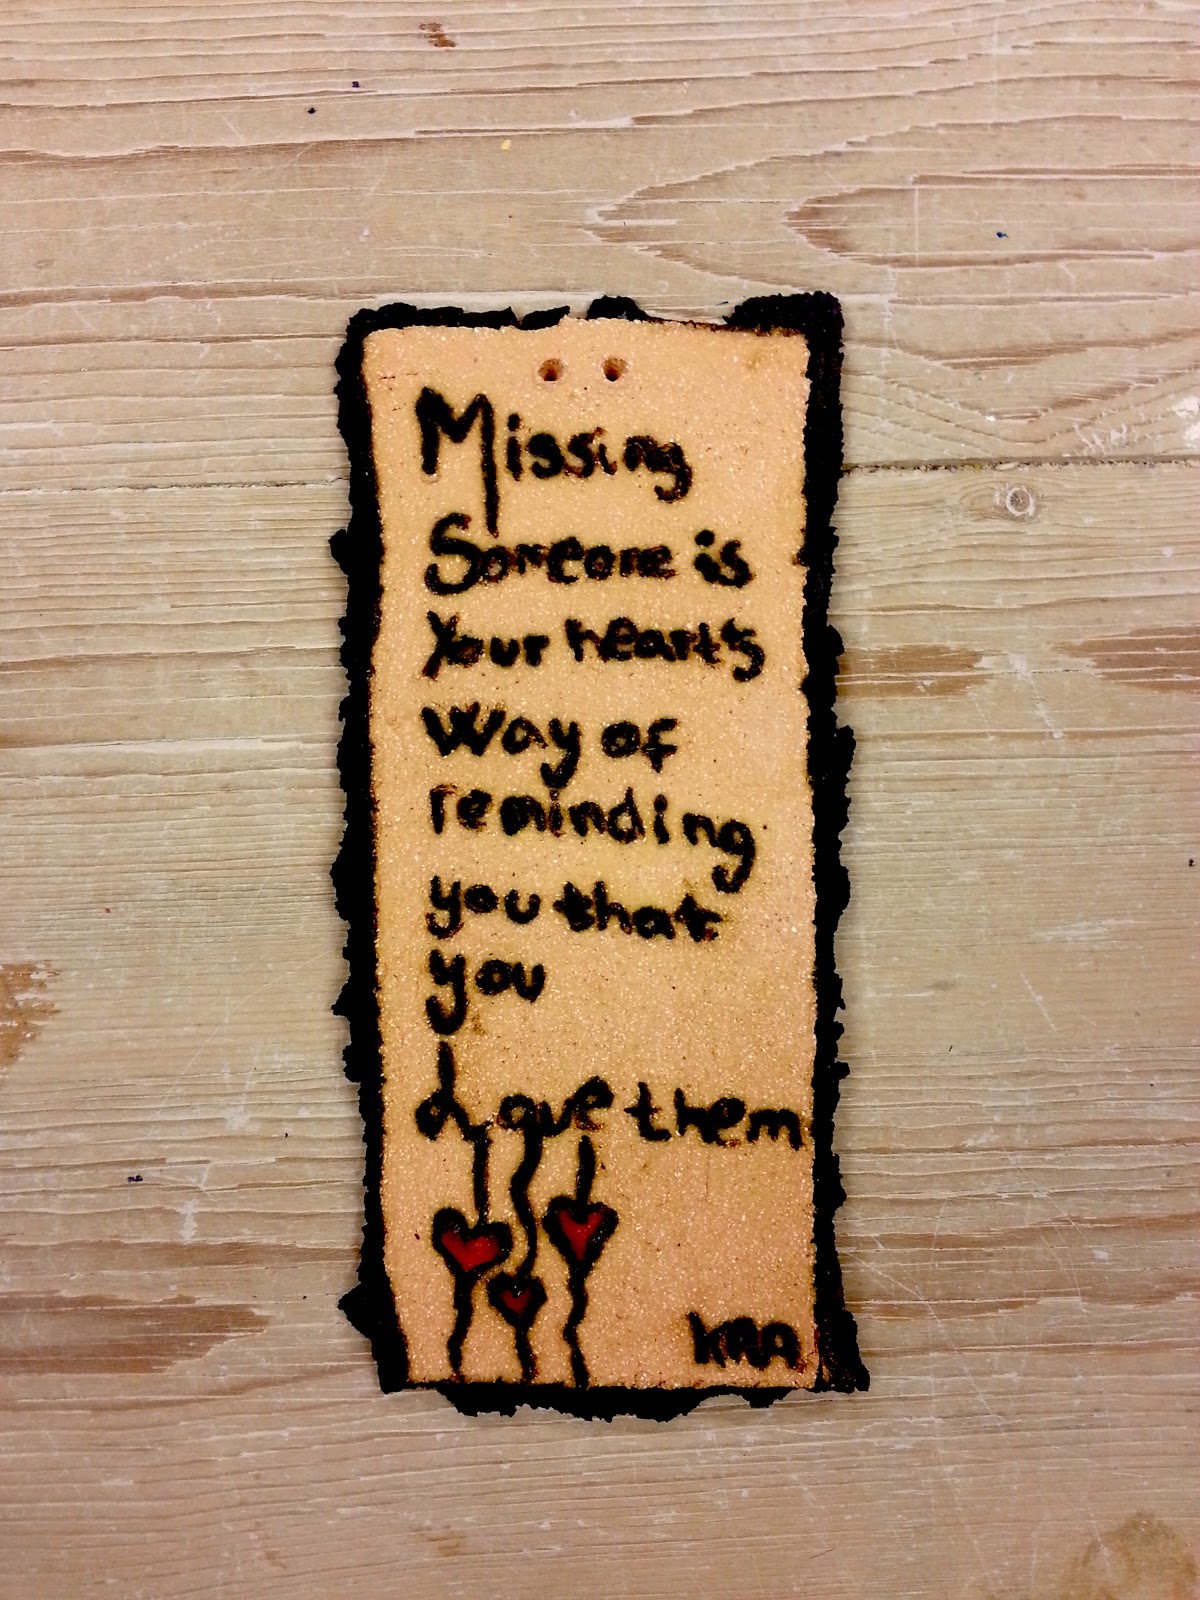 Missing
Someone is
Your heart's
way of
reminding
you that
you
Love them
KAA